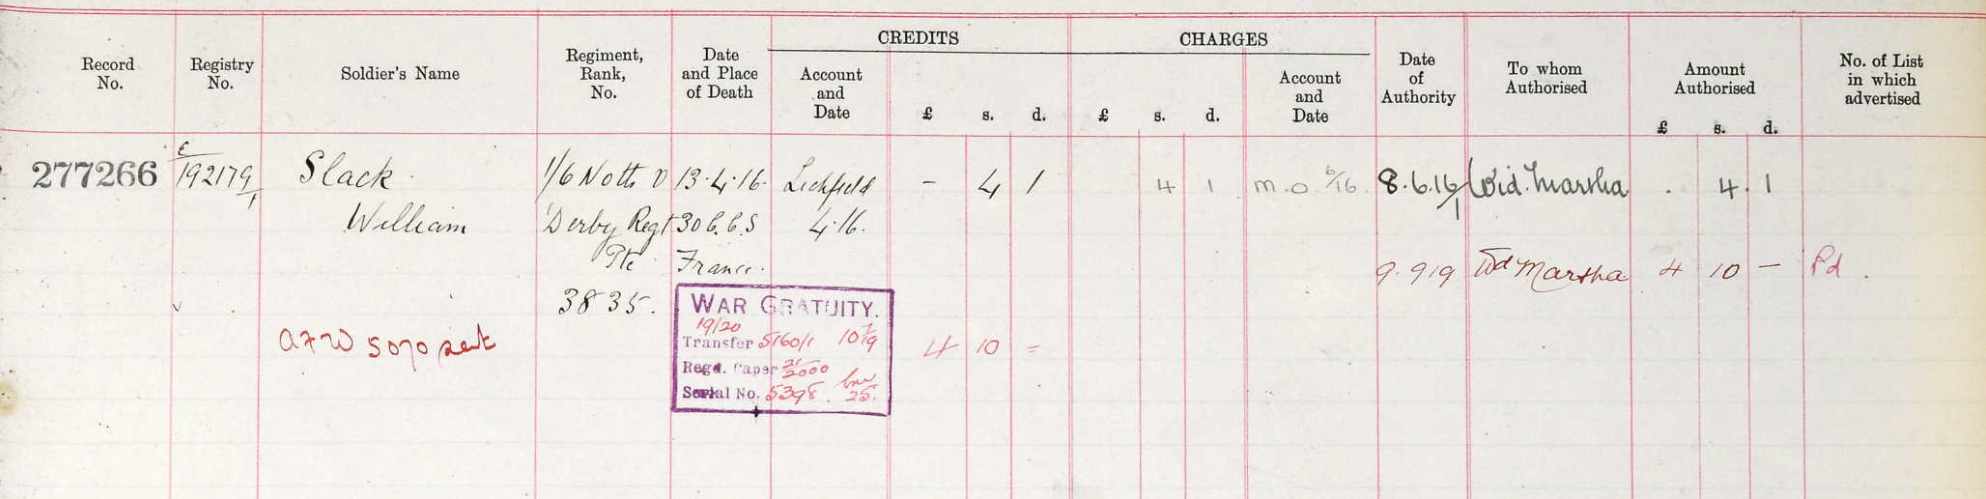 CREDITS CHARGES
Record No. Registry No. Soldier's Name Regiment, Rank, No. Date and Place of Death Account and Date £ s. d. £ s. d. Account and Date Date of Authority To whom Authorised Amount Authorised £ s. d. No. of List in which advertised
277266 E 192179/1 Slack 1/6 Notts & 13.4.16. Lichfield - 4 1 4 1 M.O. 6/16 8.6.16 Wid. Martha . 4. 1
William Derby Regt 30 C.C.S 4.16.
Pte France. 9.9.19 Wd Martha 4 10 - Pd.
3835.
WAR GRATUITY.
19/20
AFW 5070 sent Transfer 5160/1 4 10 =
Regd. Paper 2000
Serial No. 5398